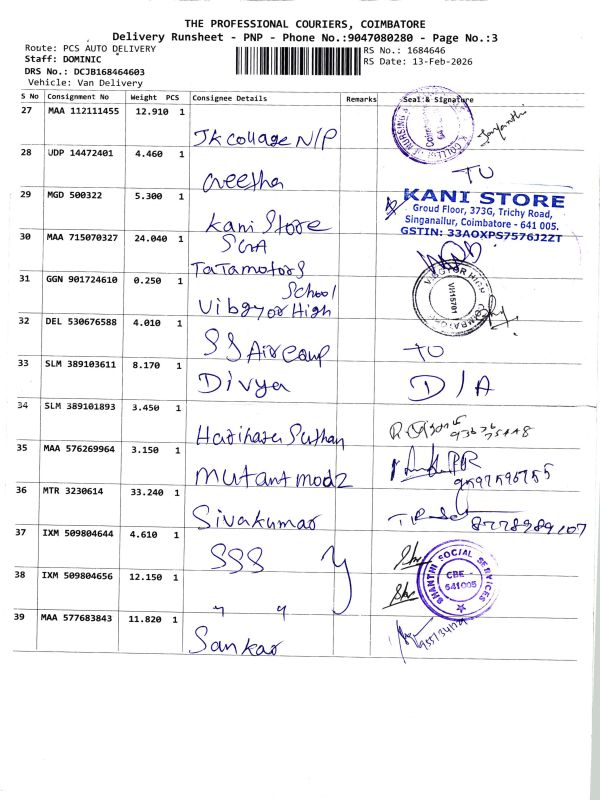 THE PROFESSIONAL COURIERS, COIMBATORE
Delivery Runsheet - PNP - Phone No.:9047080280 - Page No.:3
Route: PCS AUTO DELIVERY
RS No.: 1684646
Staff: DOMINIC
RS Date: 13-Feb-2026
DRS No.: DCJB168464603
Vehicle: Van Delivery
S No Consignment No Weight PCS Consignee Details Remarks Seal & Signature
27 MAA 112111455 12.910 1 Jk collage N/P
28 UDP 14472401 4.460 1 TO
29 MGD 500322 5.300 1 Kani Store
KANI STORE
Groud Floor, 373G, Trichy Road,
Singanallur, Coimbatore - 641 005.
GSTIN: 33AOXPS7576J2ZT
30 MAA 715070327 24.040 1 Tatamotors
31 GGN 901724610 0.250 1 Vibgyor High School
VIBGYOR HIGH
COIMBATORE
32 DEL 530676588 4.010 1 SS Air Comp TO
33 SLM 389103611 8.170 1 Divya D/A
34 SLM 389101893 3.450 1 Hariharasuthan
35 MAA 576269964 3.150 1 mutantmodz 9597596755
36 MTR 3230614 33.240 1 Sivakumar
37 IXM 509804644 4.610 1 SSS
SHANTHI SOCIAL SERVICES
CBE
641005
38 IXM 509804656 12.150 1 " "
39 MAA 577683843 11.820 1 Sankar